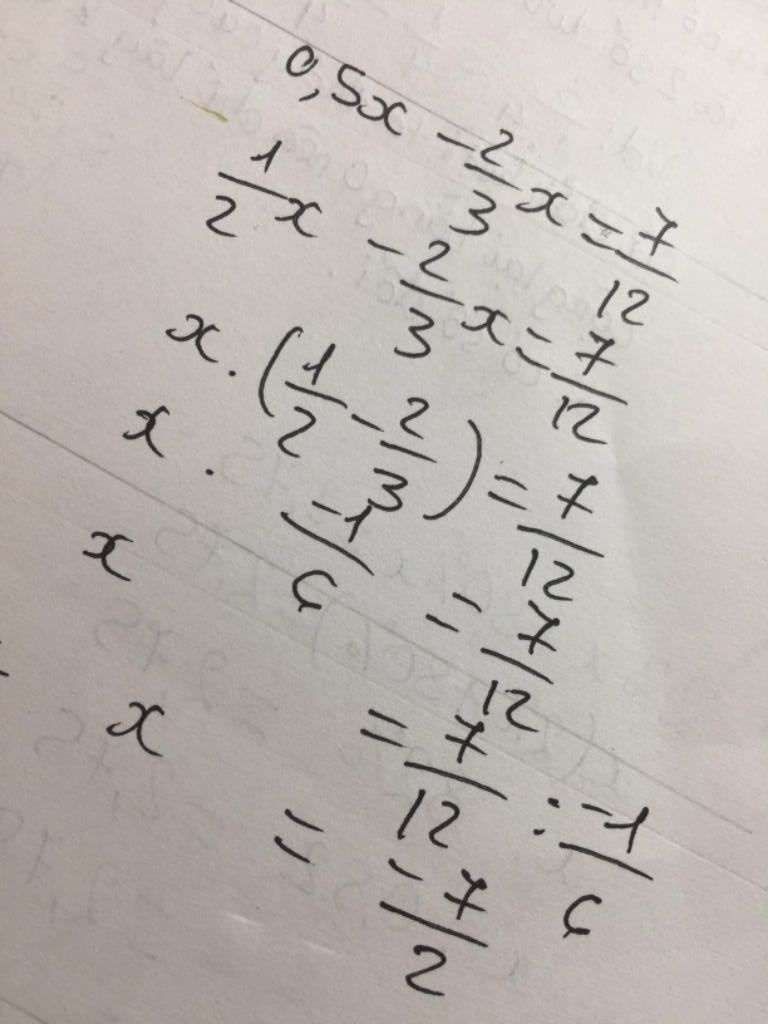 0,5x - 2/3 x = 7/12
1/2 x - 2/3 x = 7/12
x . (1/2 - 2/3) = 7/12
x . -1/6 = 7/12
x = 7/12 : -1/6
x = -7/2